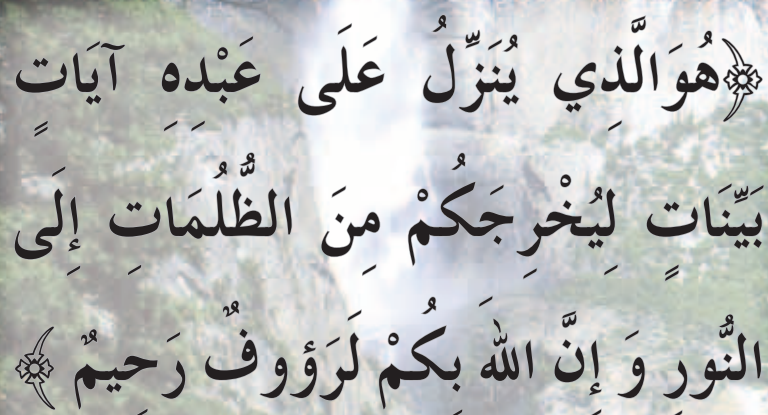 ﴿هُوَ الَّذِي يُنَزِّلُ عَلَى عَبْدِهِ آيَاتٍ
بَيِّنَاتٍ لِيُخْرِجَكُمْ مِنَ الظُّلُمَاتِ إِلَى
النُّورِ وَ إِنَّ اللهَ بِكُمْ لَرَؤُوفٌ رَحِيمٌ﴾